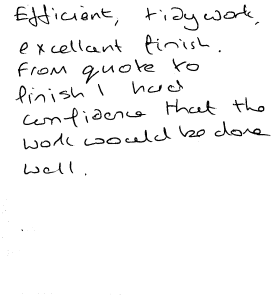 Efficient, tidy work,
excellent finish.
From quote to
finish I had
confidence that the
work would be done
well.